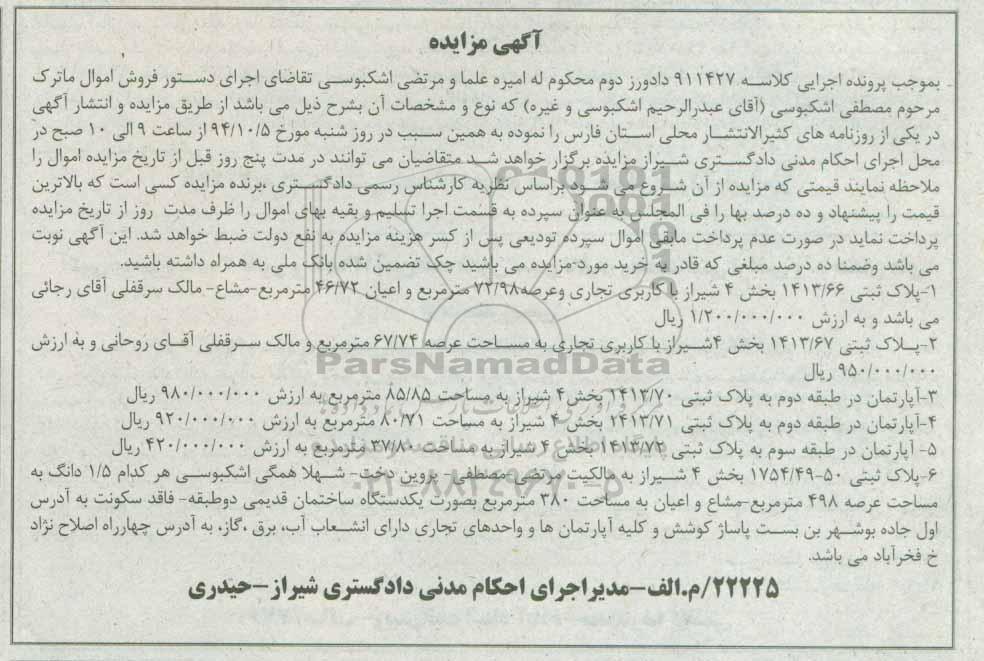 آگهی مزایده
بموجب پرونده اجرایی کلاسه ۹۱۱۴۲۷ دادورز دوم محکوم له امیره علما و مرتضی اشکبوسی تقاضای اجرای دستور فروش اموال ماترک
مرحوم مصطفی اشکبوسی (آقای عبدرالرحیم اشکبوسی و غیره) که نوع و مشخصات آن بشرح ذیل می باشد از طریق مزایده و انتشار آگهی
در یکی از روزنامه های کثیرالانتشار محلی استان فارس را نموده به همین سبب در روز شنبه مورخ ۹۴/۱۰/۵ از ساعت ۹ الی ۱۰ صبح در
محل اجرای احکام مدنی دادگستری شیراز مزایده برگزار خواهد شد متقاضیان می توانند در مدت پنج روز قبل از تاریخ مزایده اموال را
ملاحظه نمایند قیمتی که مزایده از آن شروع می شود براساس نظریه کارشناس رسمی دادگستری ،برنده مزایده کسی است که بالاترین
قیمت را پیشنهاد و ده درصد بها را فی المجلس به عنوان سپرده به قسمت اجرا تسلیم و بقیه بهای اموال را ظرف مدت روز از تاریخ مزایده
پرداخت نماید در صورت عدم پرداخت مابقی اموال سپرده تودیعی پس از کسر هزینه مزایده به نفع دولت ضبط خواهد شد. این آگهی نوبت
می باشد وضمنا ده درصد مبلغی که قادر به خرید مورد-مزایده می باشید چک تضمین شده بانک ملی به همراه داشته باشید.
۱-پلاک ثبتی ۱۴۱۳/۶۶ بخش ۴ شیراز با کاربری تجاری وعرصه ۷۲/۹۸ مترمربع و اعیان ۴۶/۷۲ مترمربع-مشاع- مالک سرقفلی آقای رجائی
می باشد و به ارزش ۱/۲۰۰/۰۰۰/۰۰۰ ریال
۲-پلاک ثبتی ۱۴۱۳/۶۷ بخش ۴شیراز با کاربری تجاری به مساحت عرصه ۶۷/۷۴ مترمربع و مالک سرقفلی آقای روحانی و به ارزش
۹۵۰/۰۰۰/۰۰۰ ریال
۳-آپارتمان در طبقه دوم به پلاک ثبتی ۱۴۱۳/۷۰ بخش۴ شیراز به مساحت ۸۵/۸۵ مترمربع به ارزش ۹۸۰/۰۰۰/۰۰۰ ریال
۴-آپارتمان در طبقه دوم به پلاک ثبتی ۱۴۱۳/۷۱ بخش ۴ شیراز به مساحت ۸۰/۷۱ مترمربع به ارزش ۹۲۰/۰۰۰/۰۰۰ ریال
۵- آپارتمان در طبقه سوم به پلاک ثبتی ۱۴۱۳/۷۲ بخش ۴ شیراز به مساحت ۳۷/۸۰ مترمربع به ارزش ۴۲۰/۰۰۰/۰۰۰ ریال
۶-پلاک ثبتی ۵۰-۱۷۵۴/۴۹ بخش ۴ شیراز به مالکیت مرتضی و مصطفی و پروین دخت- شهلا همگی اشکبوسی هر کدام ۱/۵ دانگ به
مساحت عرصه ۴۹۸ مترمربع-مشاع و اعیان به مساحت ۳۸۰ مترمربع بصورت یکدستگاه ساختمان قدیمی دوطبقه- فاقد سکونت به آدرس
اول جاده بوشهر بن بست پاساژ کوشش و کلیه آپارتمان ها و واحدهای تجاری دارای انشعاب آب، برق ،گاز، به آدرس چهارراه اصلاح نژاد
خ فخرآباد می باشد.
۲۲۲۲۵/م.الف-مدیراجرای احکام مدنی دادگستری شیراز-حیدری
ParsNamadData